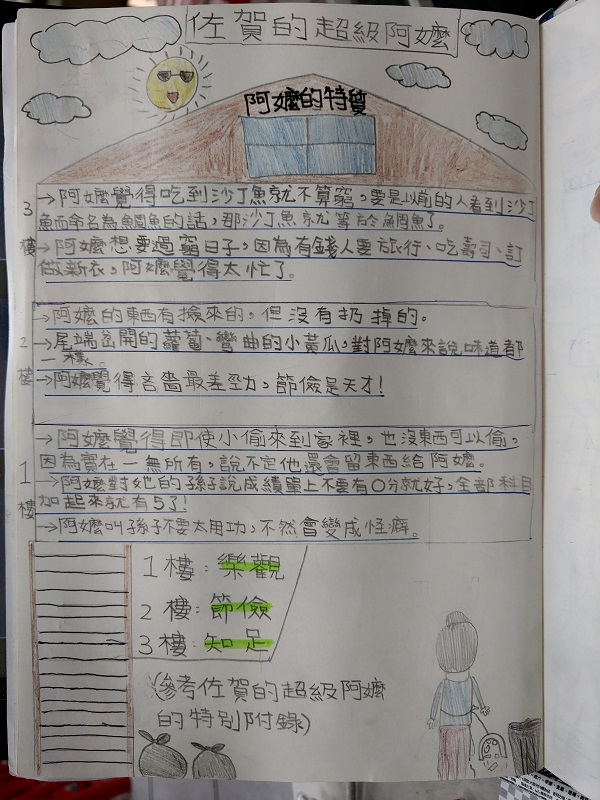 佐賀的超級阿嬤
阿嬤的特質
3樓
→阿嬤覺得吃到沙丁魚就不算窮，要是以前的人看到沙丁
魚而命名為鯛魚的話，那沙丁魚就等於鯛魚了。
→阿嬤想要過窮日子，因為有錢人要旅行、吃壽司、訂
做新衣，阿嬤覺得太忙了。
2樓
→阿嬤的東西有撿來的，但沒有扔掉的。
→尾端岔開的蘿蔔、彎曲的小黃瓜，對阿嬤來說，味道都
一樣。
→阿嬤覺得吝嗇最差勁，節儉是天才！
1樓
→阿嬤覺得即使小偷來到家裡，也沒東西可以偷，
因為實在一無所有，說不定他還會留東西給阿嬤。
→阿嬤對她的孫子說成績單上不要有0分就好，全部科目
加起來就有5了！
→阿嬤叫孫子不要太用功，不然會變成怪癖。
1樓：樂觀
2樓：節儉
3樓：知足
（參考佐賀的超級阿嬤
的特別附錄）